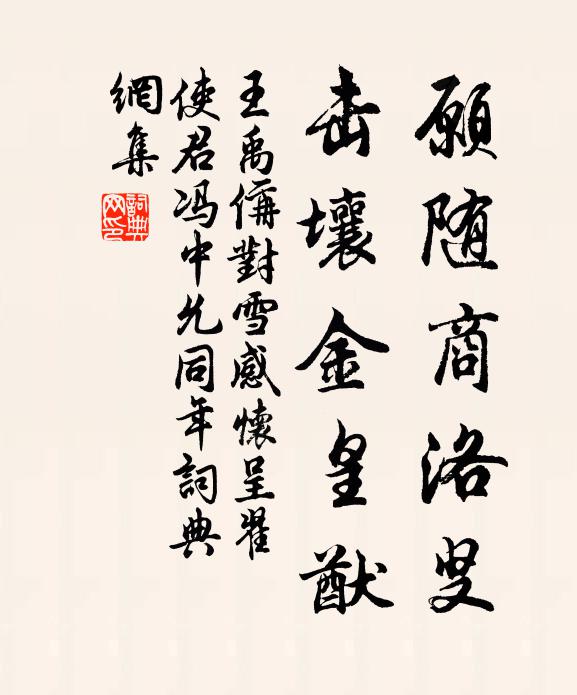 願随商洛叟
击壤金皇猷
王禹偁對雪感懷呈翟
使君冯中允同年詞典
網集
詞典
网印